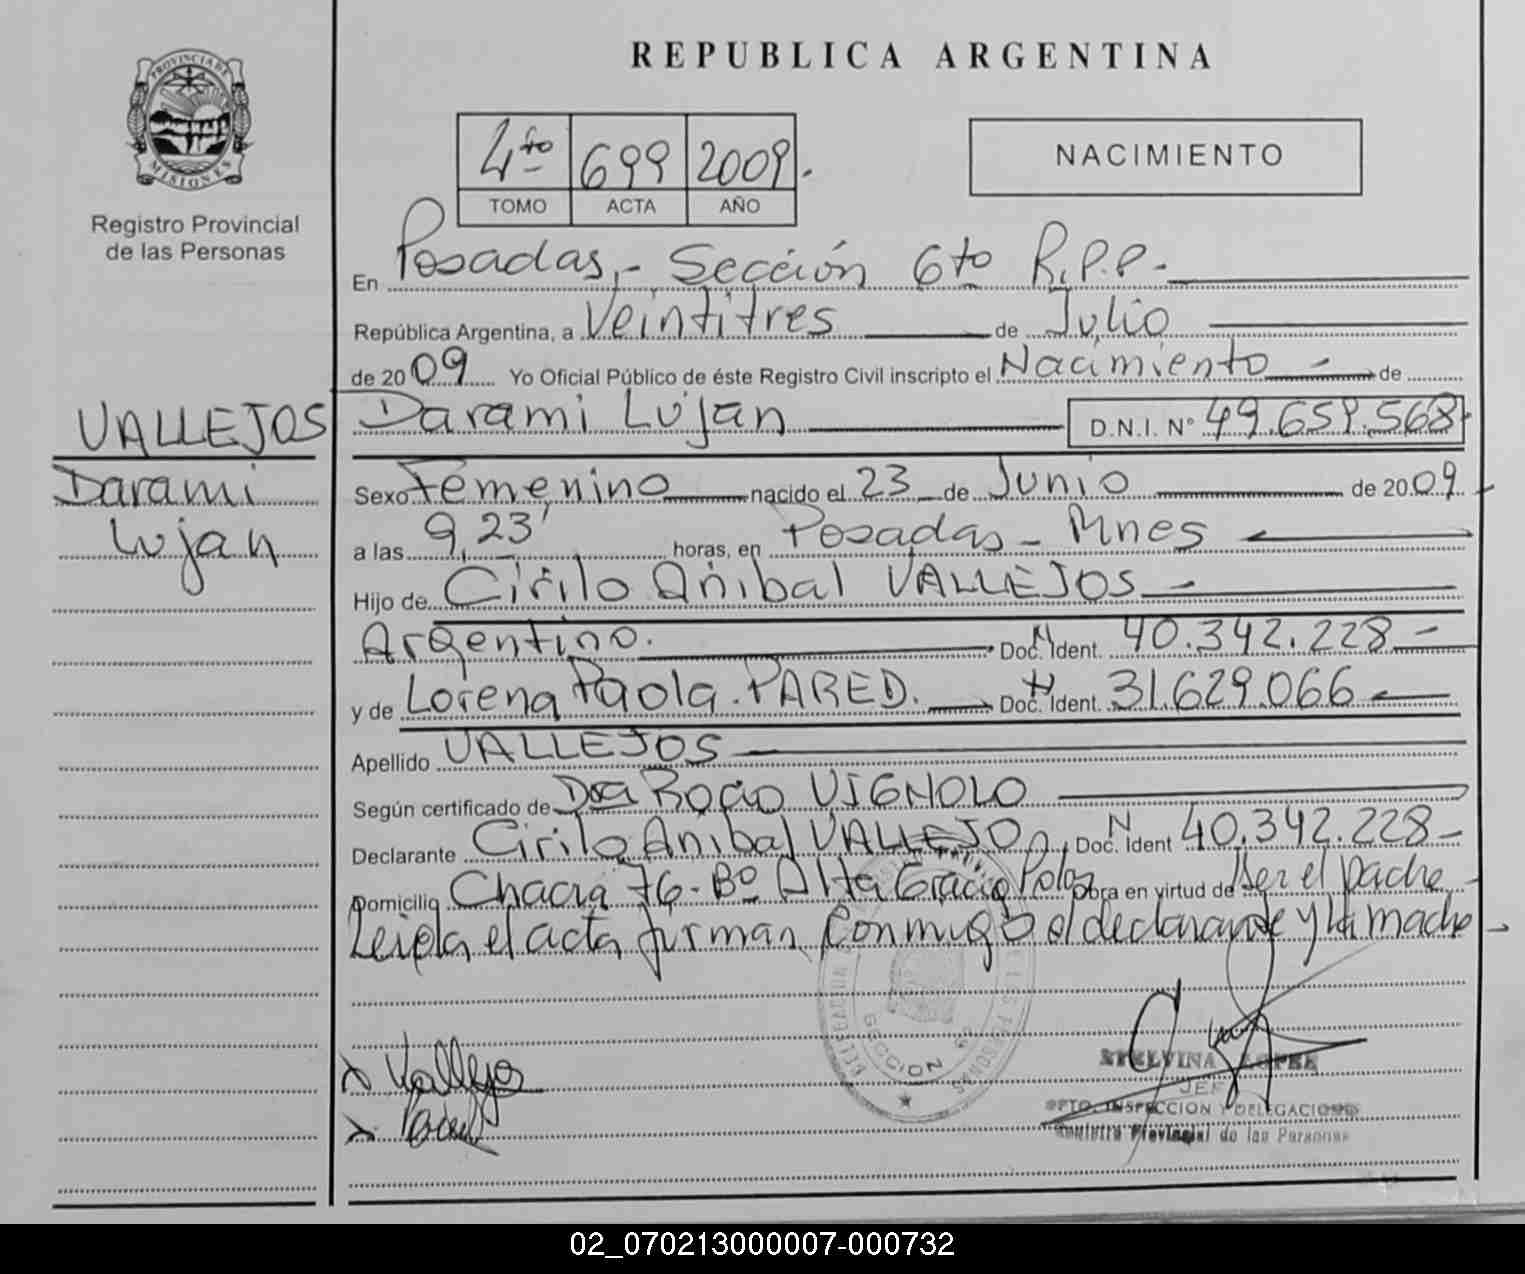 PROVINCIA DE
MISIONES
Registro Provincial
de las Personas
REPUBLICA ARGENTINA
4to 699 2009.
TOMO ACTA AÑO
NACIMIENTO
En Posadas,- Sección 6to R.P.P.-
República Argentina, a Veintitres de Julio
de 2009 Yo Oficial Público de éste Registro Civil inscripto el Nacimiento - de
VALLEJOS
Darami
Lujan
Darami Lujan D.N.I. N° 49.659.568
Sexo Femenino nacido el 23 de Junio de 2009
a las 9,23' horas, en Posadas - Mnes
Hijo de Cirilo Anibal VALLEJOS -
Argentino. Doc. N Ident. 40.342.228 -
y de Lorena Paola. PARED. Doc. N Ident. 31.629.066 -
Apellido VALLEJOS
Según certificado de Dra Rocio VIGNOLO
Declarante Cirilo Anibal VALLEJO Doc. N Ident 40.342.228-
Domicilio Chacra 76 - Bº Alta Gracia Pdas Obra en virtud de ser el padre -
Leida el acta firman conmigo el declarante y la madre -
Vallejo
SECCION
PERSONAS
STELVINA LOPEZ
JEF
DPTO. INSPECCION Y DELEGACIONES
Registro Provincial de las Personas
02_070213000007-000732